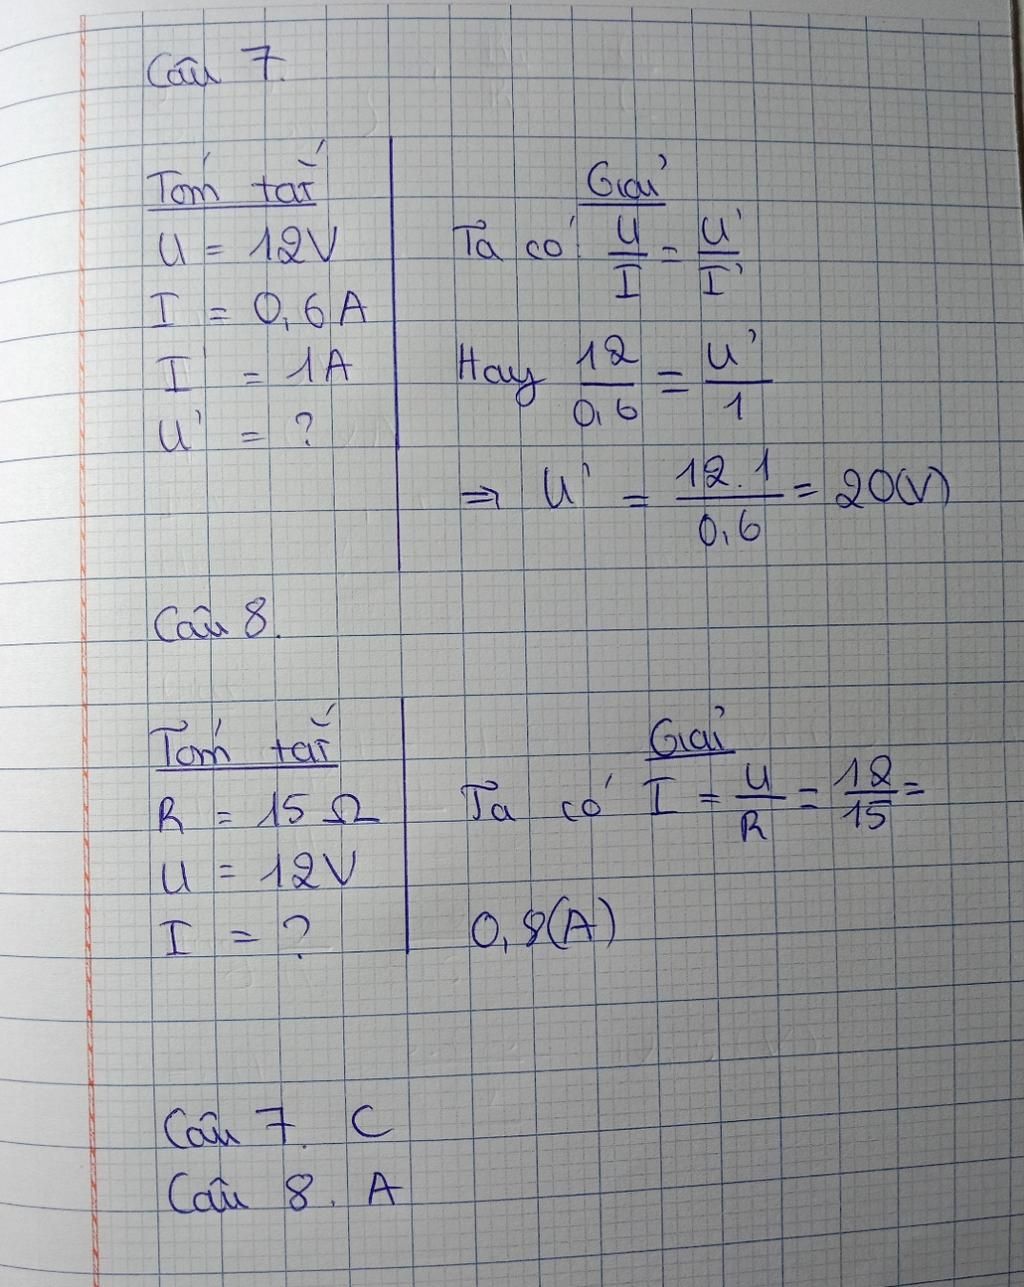 Câu 7.
Tóm tắt
U = 12V
I = 0,6A
I' = 1A
U' = ?
Giải
Ta có U/I = U'/I'
Hay 12/0,6 = U'/1
=> U' = 12.1/0,6 = 20(V)
Câu 8.
Tóm tắt
R = 15 Ω
U = 12V
I = ?
Giải
Ta có I = U/R = 12/15 =
0,8(A)
Câu 7. C
Câu 8. A